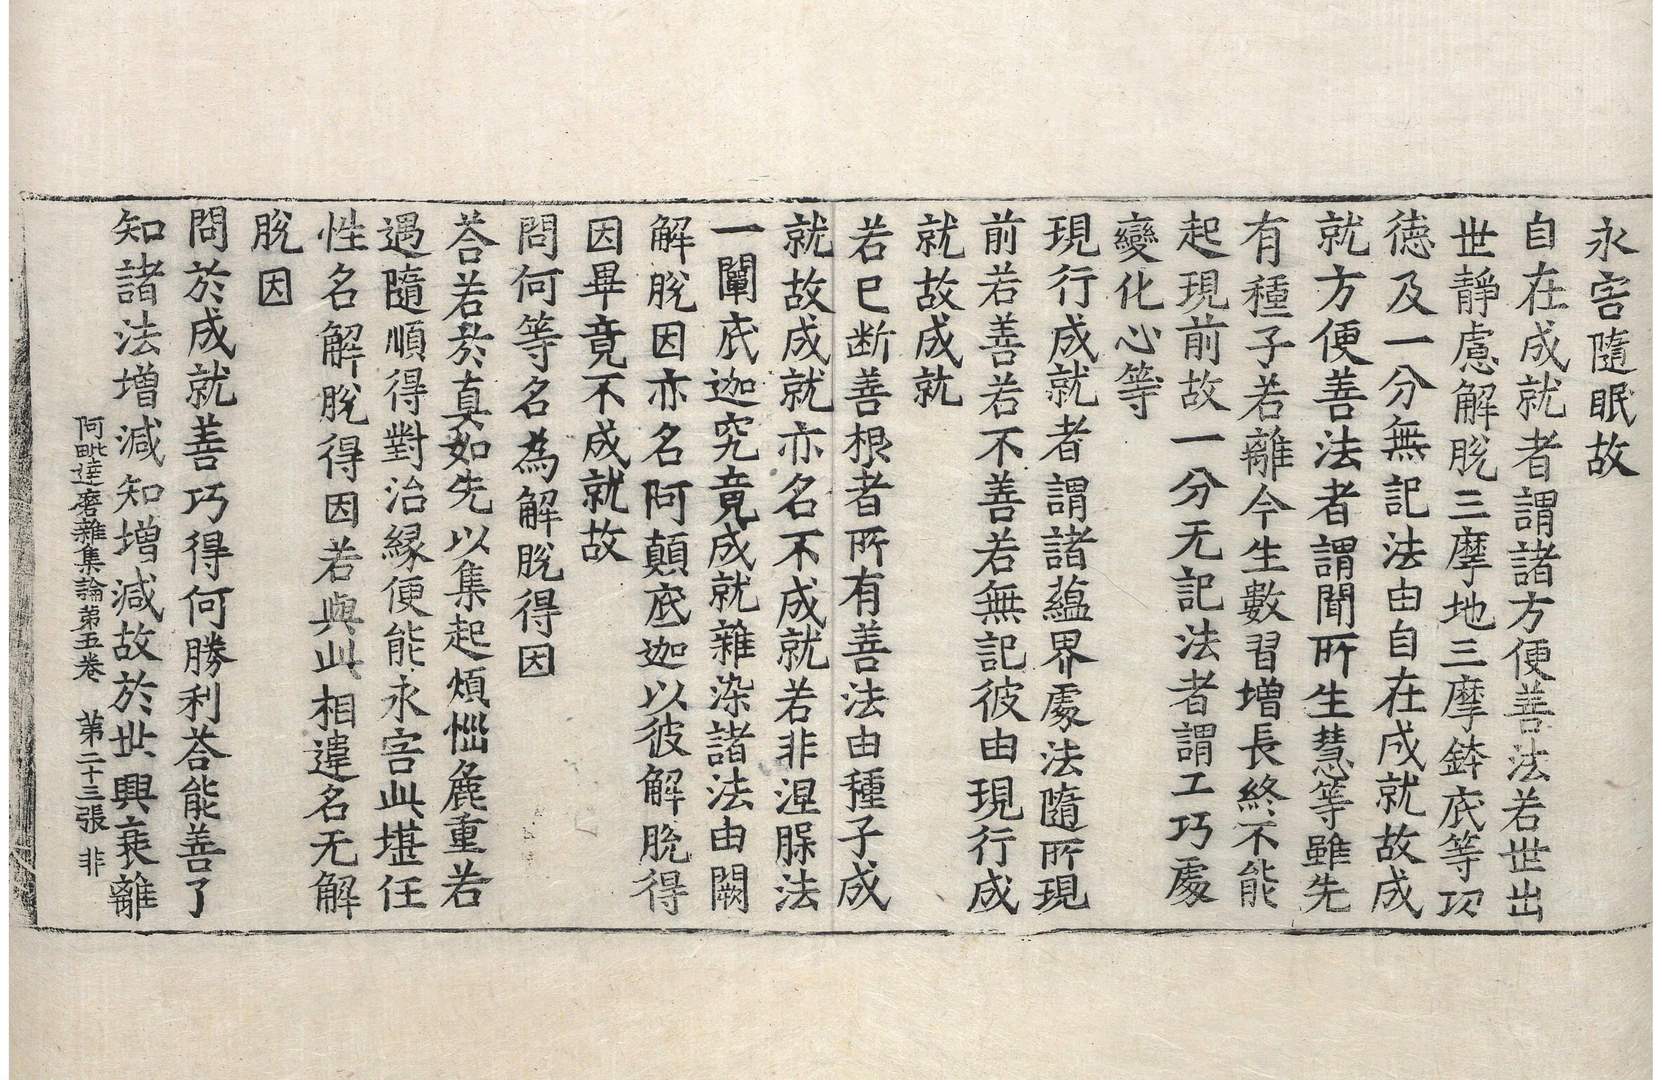 永害隨眠故
自在成就者謂諸方便善法若世出
世靜慮解脫三摩地三摩鉢底等功
德及一分無記法由自在成就故成
就方便善法者謂聞所生慧等雖先
有種子若離今生數習增長終不能
起現前故一分无記法者謂工巧處
變化心等
現行成就者謂諸蘊界處法隨所現
前若善若不善若無記彼由現行成
就故成就
若已断善根者所有善法由種子成
就故成就亦名不成就若非涅槃法
一闡底迦究竟成就雜染諸法由闕
解脫因亦名阿顛底迦以彼解脫得
因畢竟不成就故
問何等名為解脫得因
荅若於真如先以集起煩惱麁重若
遇隨順得對治縁便能永害此堪任
性名解脫得因若與此相違名无解
脫因
問於成就善巧得何勝利荅能善了
知諸法增減知增減故於世興衰離
阿毗達磨雜集論第五卷 第二十三張 非